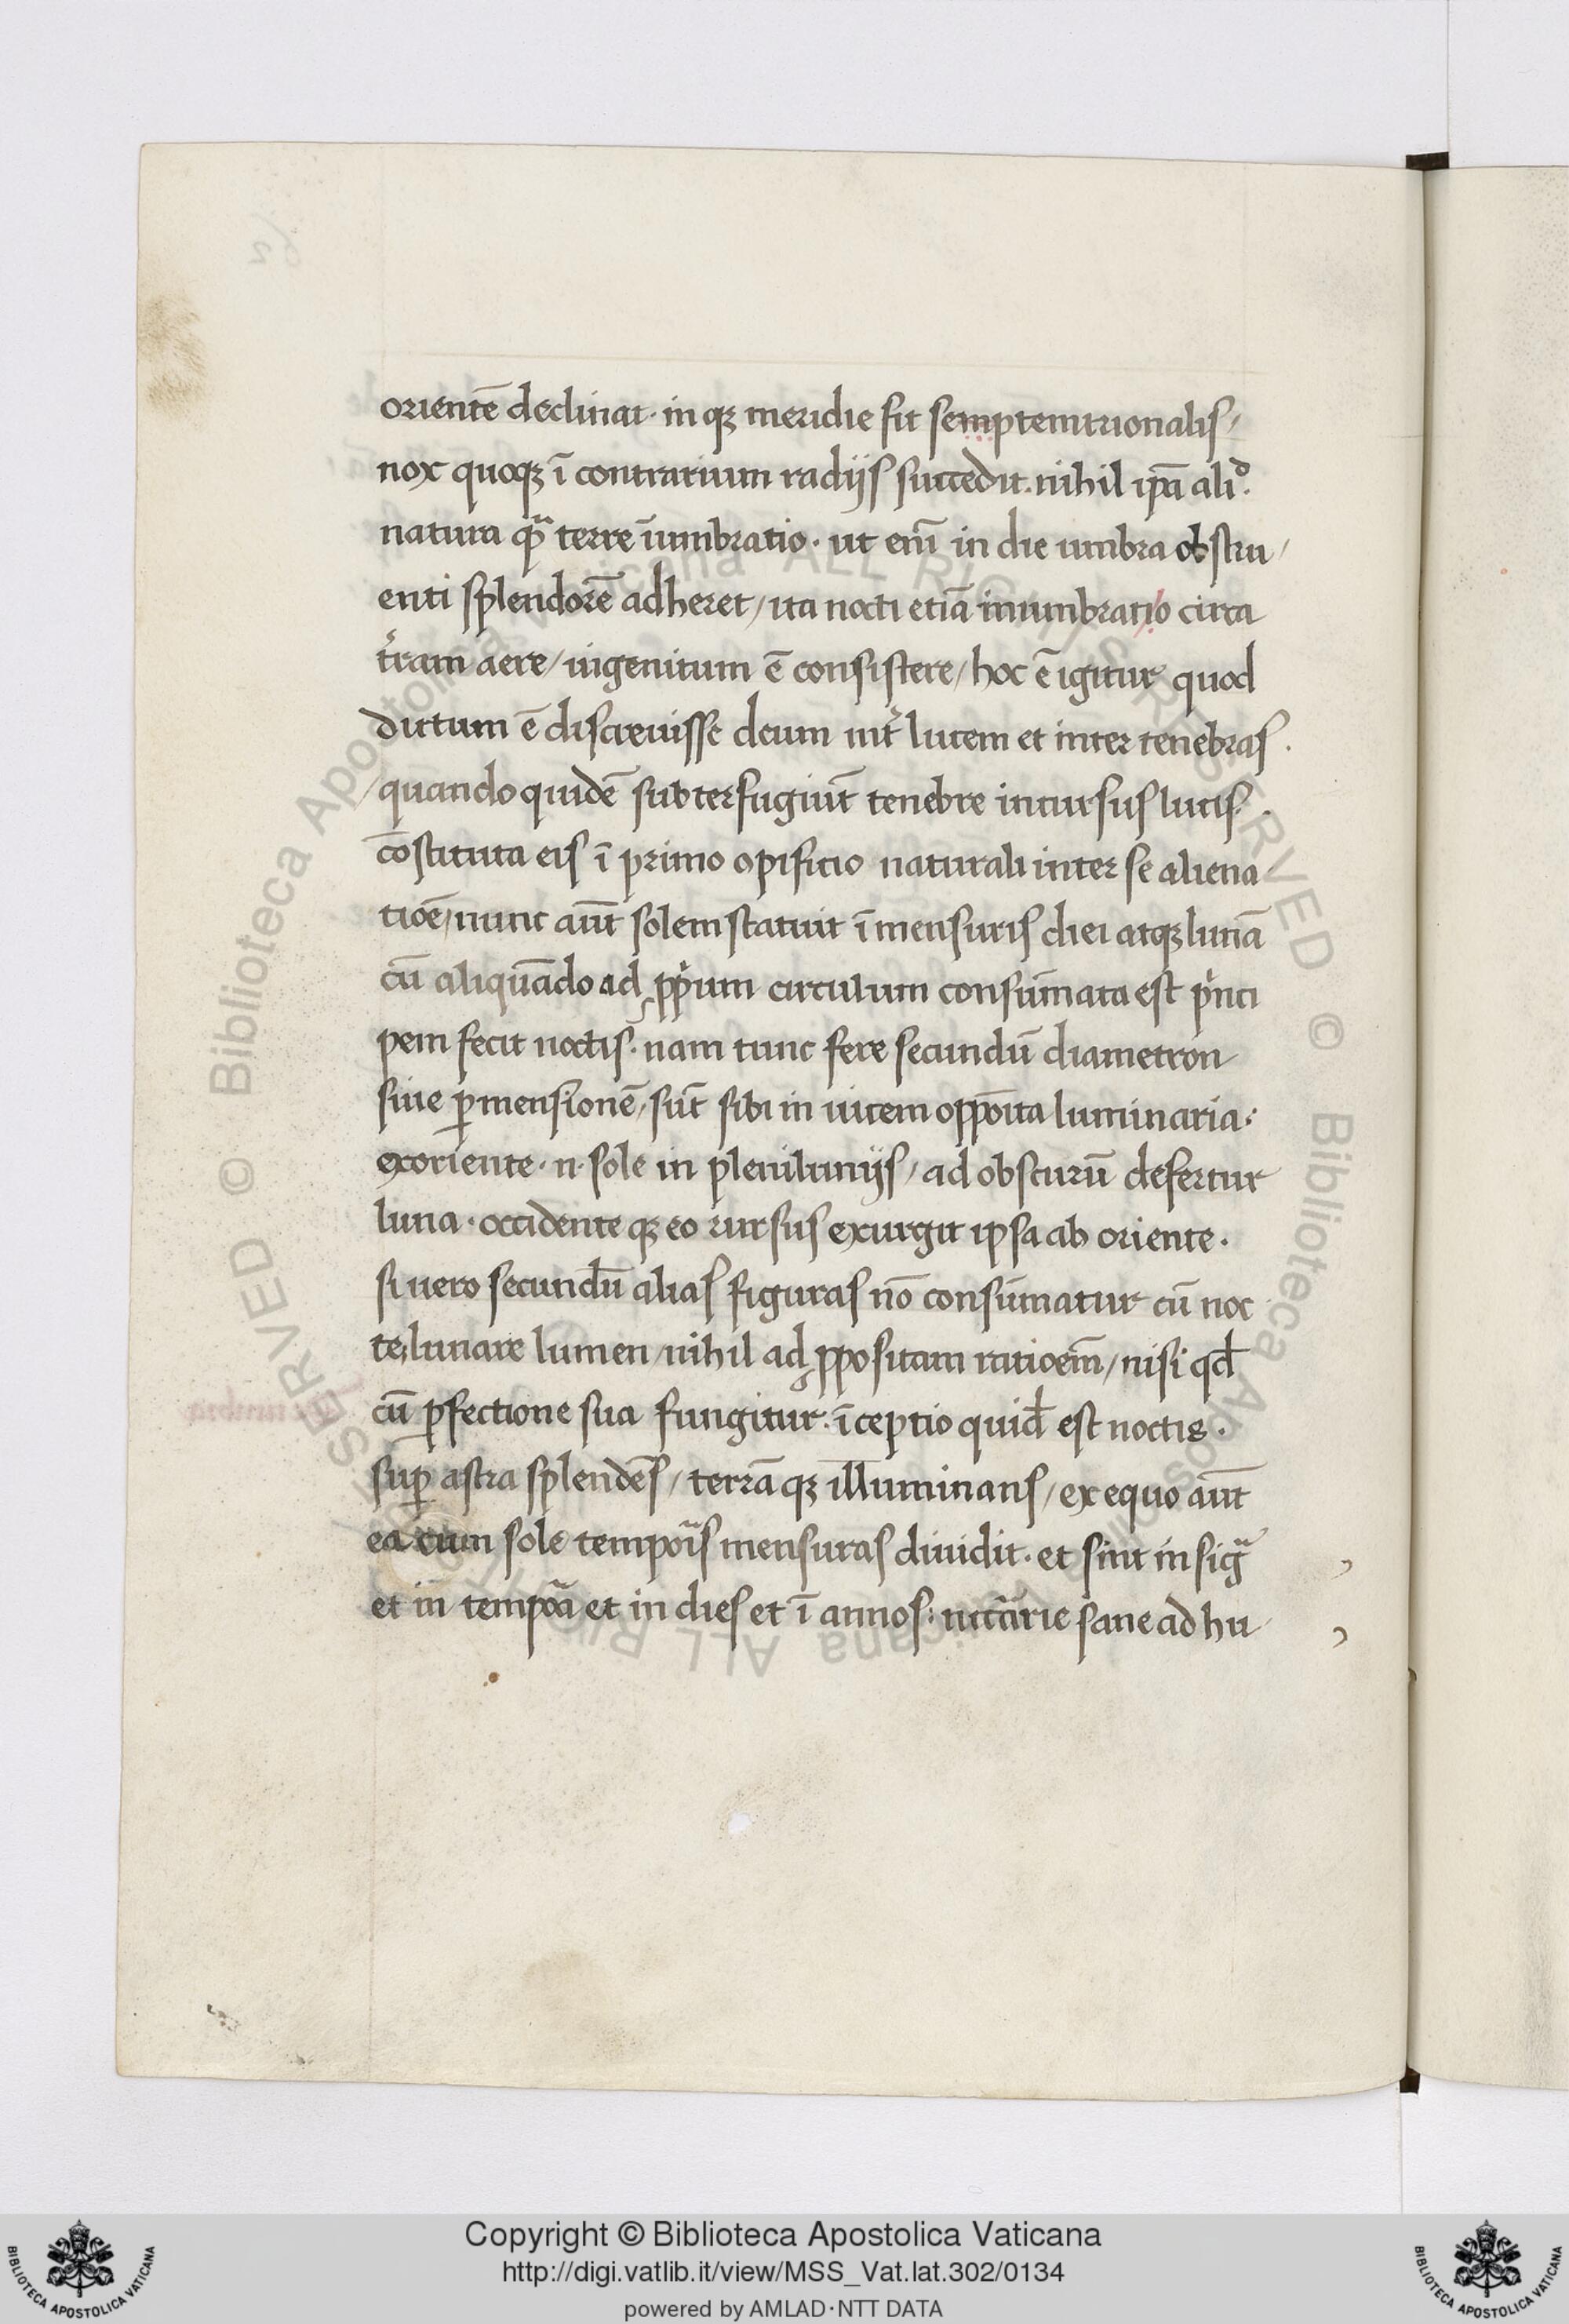 orientē declinat · in qȝ meridie fit semptemtrionalis /
nox quoqȝ ī contrarium radijs succedit . nihil ip̄a ali͛d .
natura q̃ȝ terre īumbratio · ut enī in die umbra obstru /
enti splendorē adheret / ita nocti etiā inumbratio circa
t͛ram aere / ingenitum ē consistere / hoc ē igitur quod
dictum ē discreuisse deum int͛ lucem et inter tenebras .
/ quando quidē subterfugiūt tenebre incursus lucis .
cōstituta eis ī primo opificio naturali inter se aliena
tiōe / nunc aūt solem statuit ī mensuris diei atqȝ lunā
cū aliquādo ad ꝓp̍um circulum consūmata est p̍nci
pem fecit noctis · nam tunc fere secundū diametron
siue ꝑmensionē / sūt sibi in uicem oppōita luminaria :
exoriente · n · sole in plenilunijs / ad obscurū defertur
luna · occidente qȝ eo rursus exurgit ipsa ab oriente .
si uero secundū alias figuras nō consūmatur cū noc
te lunare lumen / nihil ad ꝓpositam ratioem̄ / nisi qd̄
cū ꝑfectione sua fungitur . īceptio quid̄ est noctis .
suꝑ astra splendēs / terrā qȝ illuminans / ex equo aūt
ea cum sole tempoı̃s mensuras diuidit · et sint in sig̃
et in tempoã et in dies et ī annos : sane ad hu
Copyright © Biblioteca Apostolica Vaticana
http://digi.vatlib.it/view/MSS_Vat.lat.302/0134
powered by AMLAD·NTT DATA